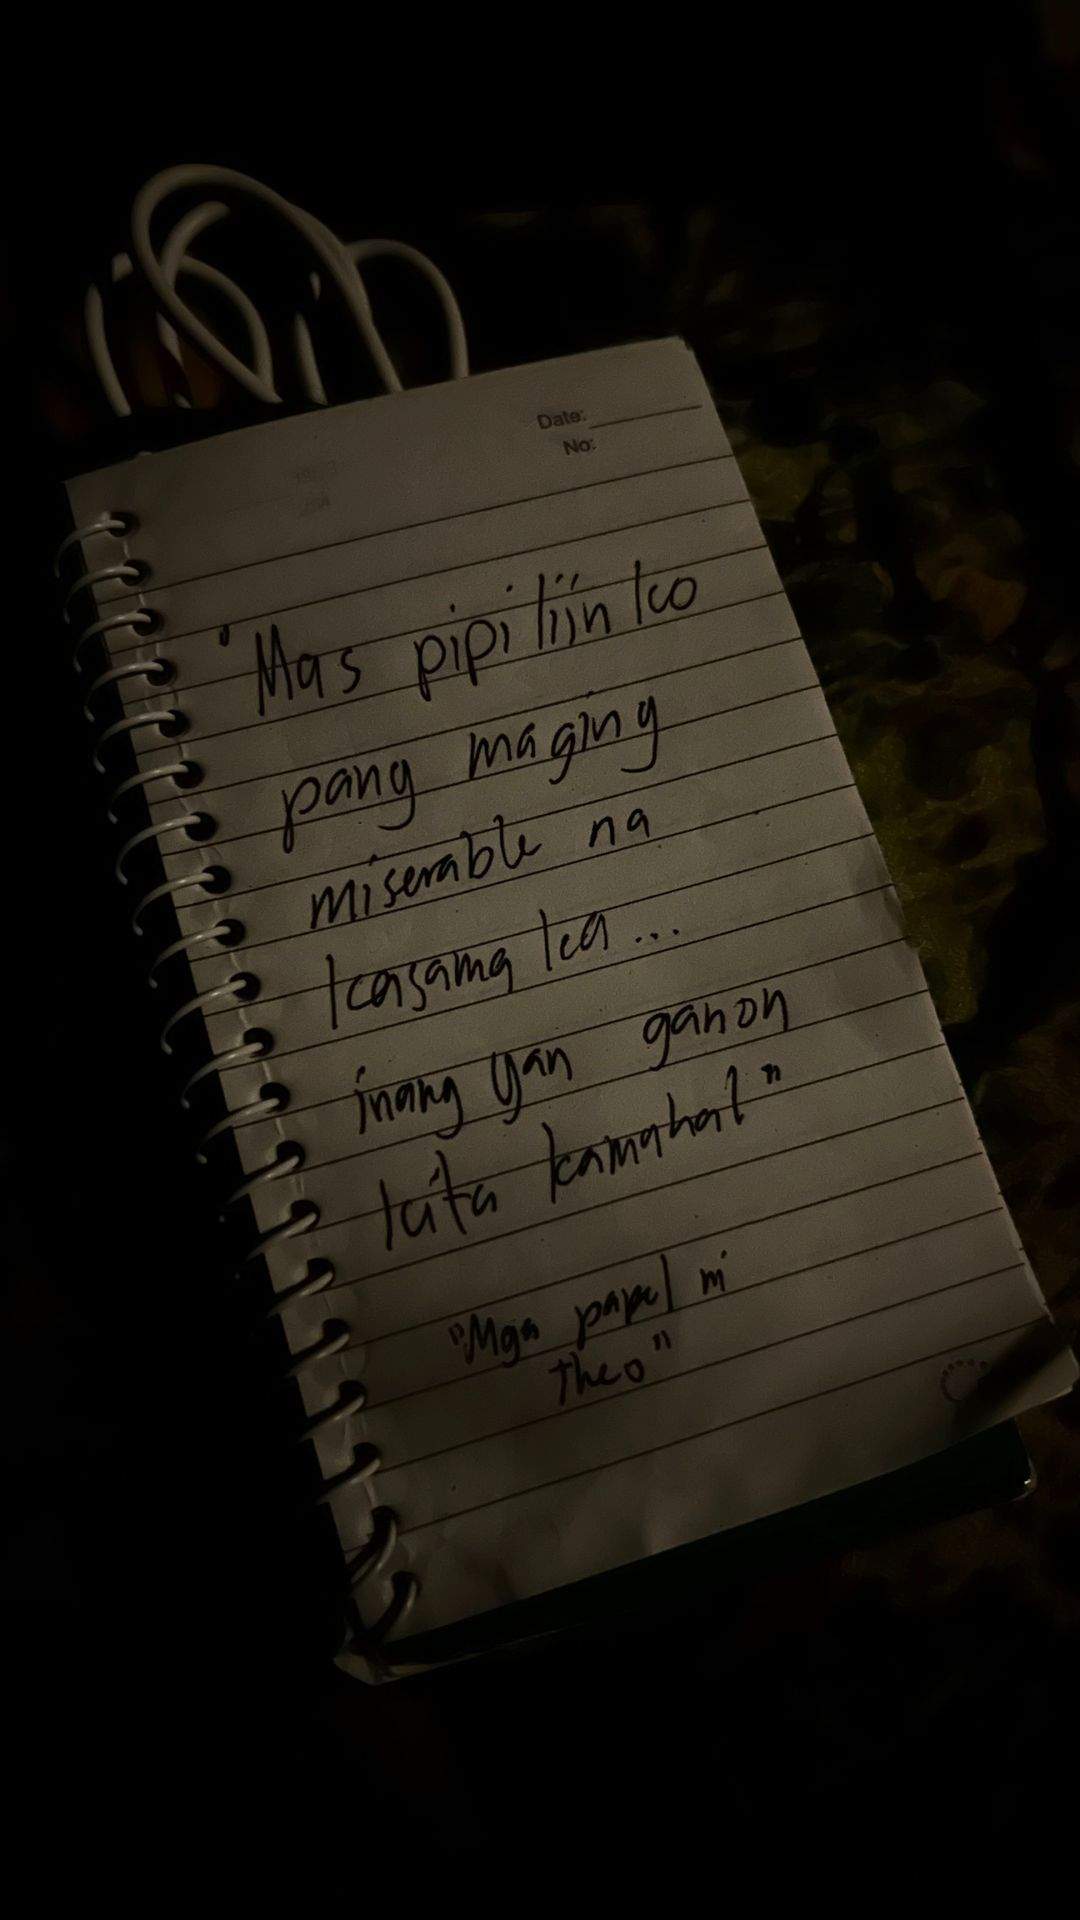 Date:
No:
"Mas pipiliin ko
pang maging
miserable na
kasama ka...
inang yan ganon
kita kamahal"
"Mga papel ni
theo"